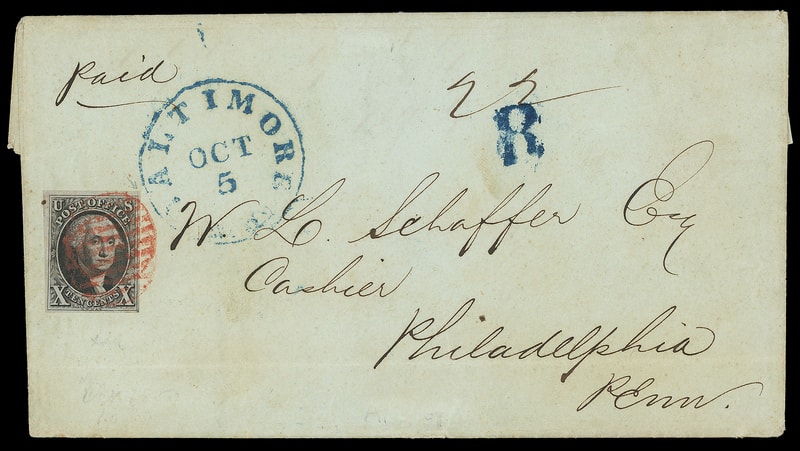 Paid
22
R
BALTIMORE
OCT
5
U S
POST OFFICE
X TEN CENTS X
W. L. Schaffer Esq
Cashier
Philadelphia
Penn.